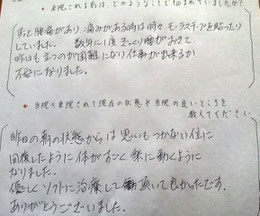 来院される前は、どのようなことで悩まれていましたか?
ずっと腰痛があり、痛みがある時は時々モーラステープを貼ったり
していました。 数年に1度ぎっくり腰がおきて
昨日も立つのが困難になり仕事が出来るか
不安になりました。
当院へ来院されて現在の状態や当院の良いところを
教えてください
昨日の朝の状態からは思いもつかない位に
回復したように体がすごく楽に動くように
なりました。
優しくソフトに治療して頂いて良かったです。
ありがとうございました。